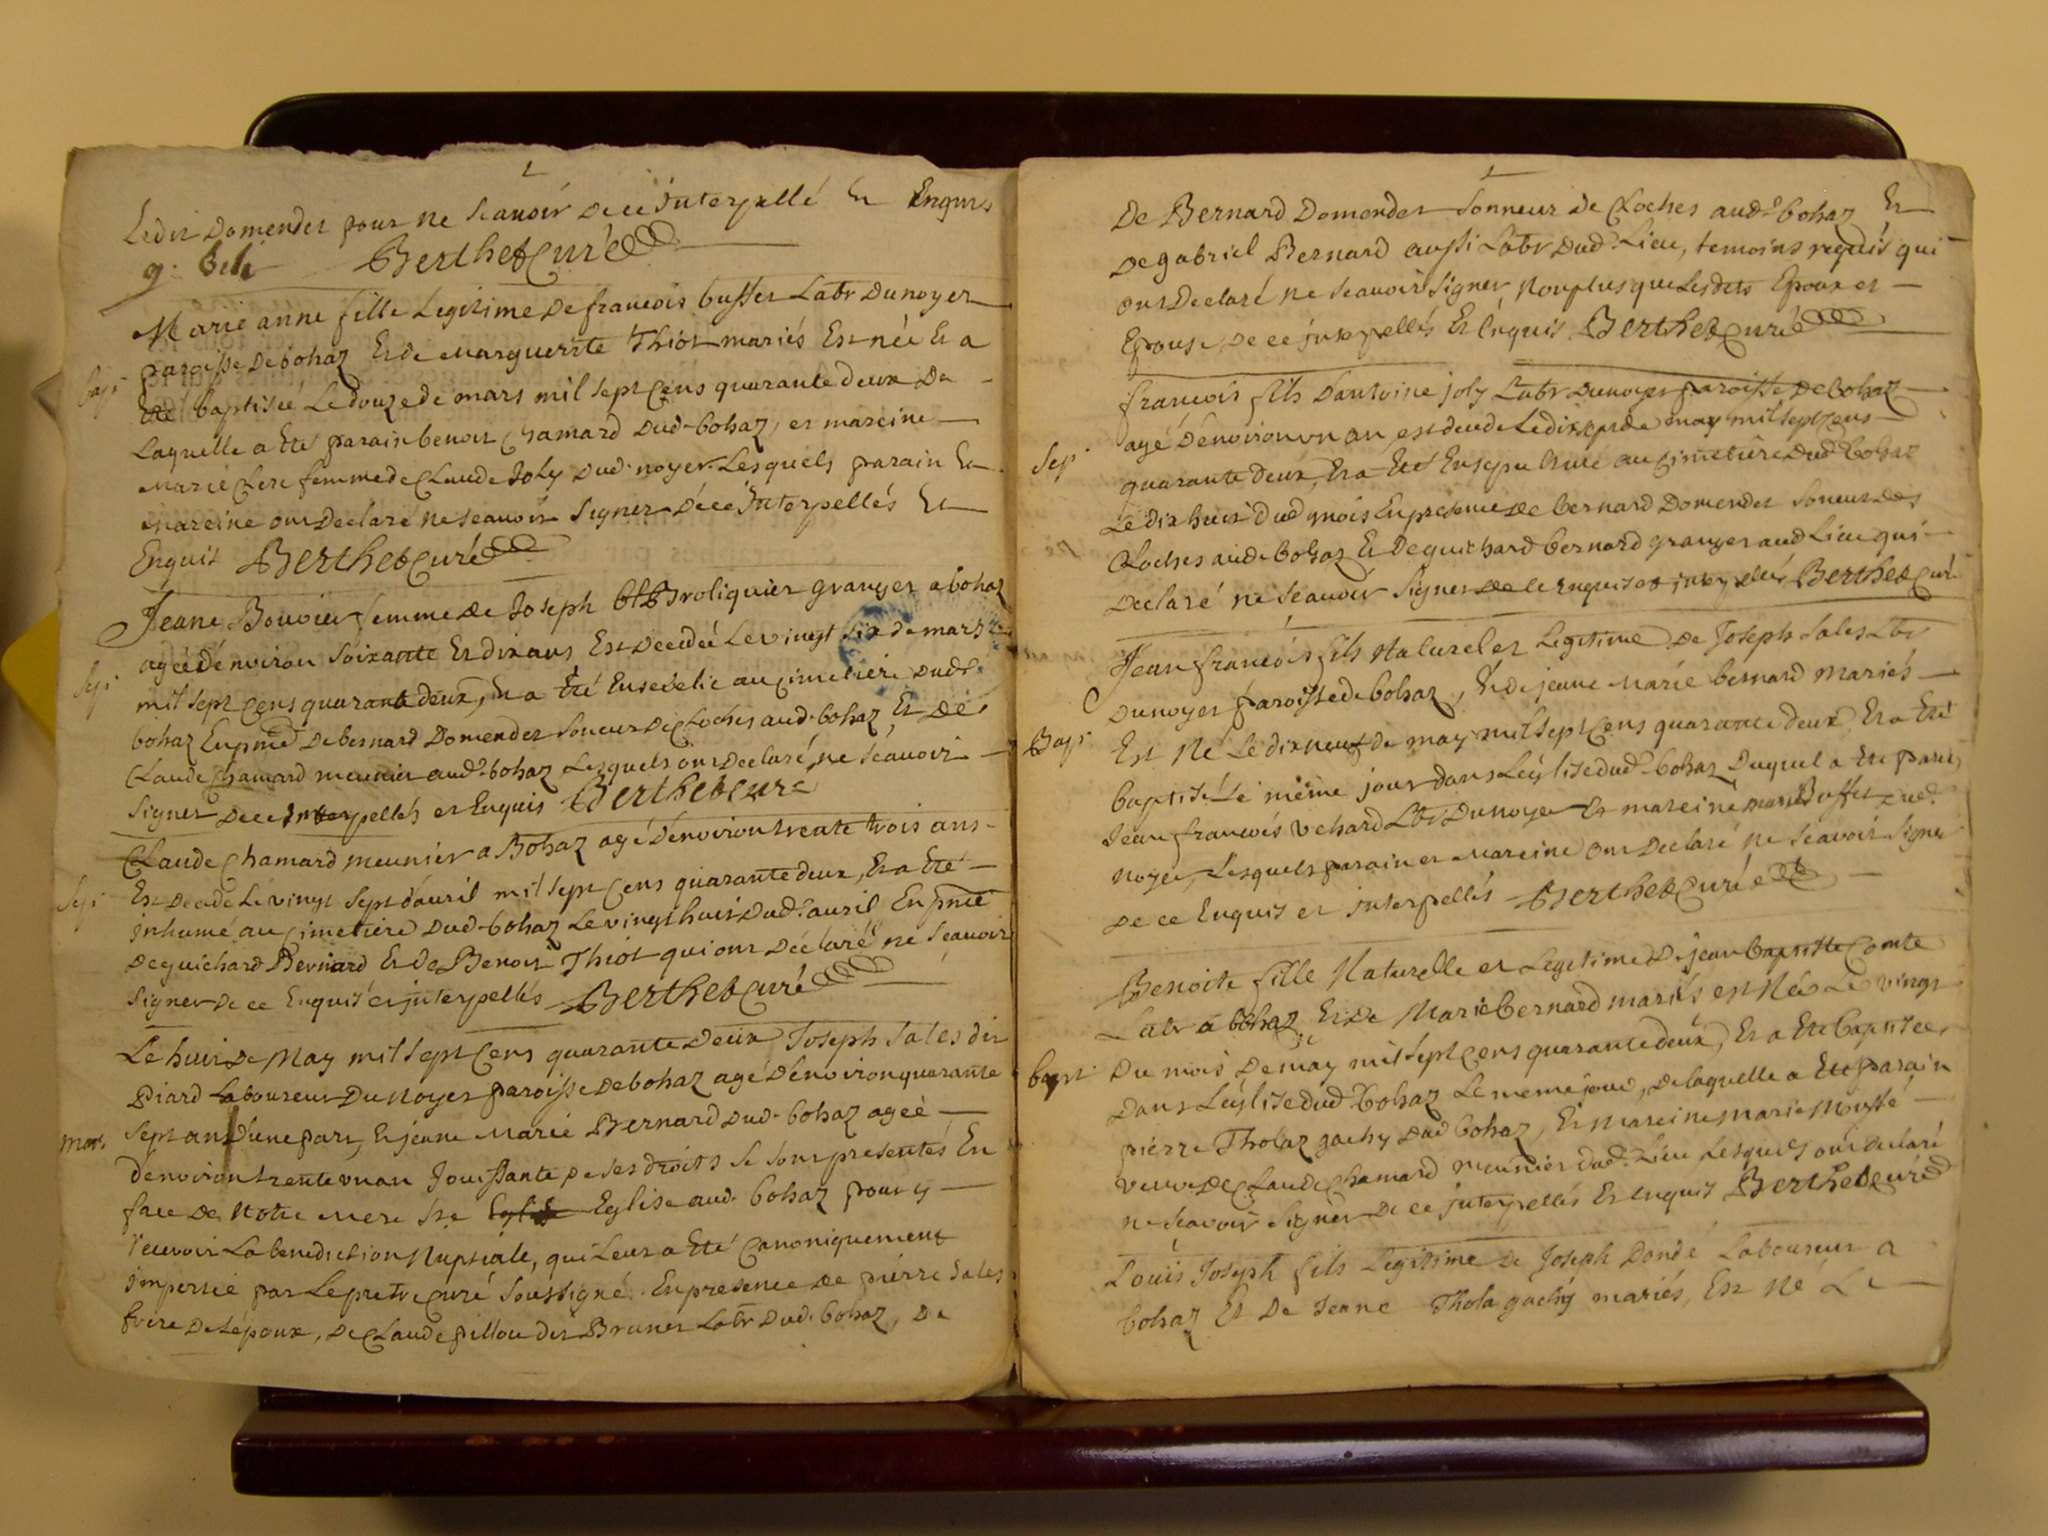 Ledit Domender pour ne scauoir dece interpellé Et Enquis
g. Beli Berthet Curé
Marie anne fille Legitime de francois buffet Labr dunoyer
paroisse de bohaz Et de Marguerite Thiot mariés Est née Et a
bap. Eté baptisée Le douze de mars mil sept Cens quarante deux De
Laquelle a Eté parain benoit Chamard dud. bohaz, et mareine
Marie Clere femme de Claude Joly dud. noyer Lesquels parain Et
Mareine ont Declaré ne scauoir signer Dece interpellés Et
Enquis Berthet Curé
Jeane Bouvier femme de Joseph Broliquier granger a bohaz
agée dénviron soixante Et dix ans Est Decedée Le vingt six de mars
Sep. mil sept Cens quarante deux, Et a Eté Enseuelie au cimetiere dud.
bohaz En pnce de bernard Domender soneur de Cloches aud. bohaz Et De
Claude Chamard meunier aud. bohaz Lesquels ont Declaré ne scauoir
signer Dece interpellés et Enquis Berthet Curé
Claude Chamard meunier a Bohaz agé dénviron trente trois ans
Sep. Est Decedé Le vingt sept dauril mil sept Cens quarante deux, Et a Eté
inhumé au cimetiere dud. bohaz Le vingt huit dud. auril En pnce
De guichard Bernard Et de Benoit Thiot qui ont Déclaré ne scauoir
signer de ce Enquis et interpellés Berthet Curé
Le huit de May mil sept Cens quarante deux Joseph Sales dit
Piard Laboureur du Noyer paroisse de bohaz agé dénviron quarante
Mar. sept ans dune part, Et jeane Marie Bernard dud. bohaz ageé
dénviron trente un an Jouissante de ses droits se sont presentés En
face de Notre Mere Ste Eglise aud. bohaz pour y
receuoir La benediction Nuptiale, qui Leur a Eté Canoniquement
impertie par Le pretre Curé soussigné. En presence de pierre Sales
frere de Lépoux, de Claude pillou dit Brunet Labr dud. bohaz, De
De Bernard Domender sonneur de Cloches aud. bohaz Et
De gabriel Bernard aussi Labr dud. Lieu, temoins requis qui
ont Declaré ne scauoir signer Nonplus que Lesdits Epoux et
Epouse de ce interpellés Et Enquis Berthet Curé
francois fils dantoine joly Labr dunoyer paroisse de bohaz
agé dénviron un an est decedé Le dix sept de may mil sept Cens
Sep. quarante deux, Et a Eté Ensepulturé au cimetiere dud. bohaz
Le dix huit dud. mois En presence de bernard Domender soneur des
Cloches aud. bohaz Et De guichard bernard granger aud. Lieu qui
Declaré ne scauoir signer de ce Enquis et interpellés Berthet Curé
Jean francois fils Naturel et Legitime de Joseph Sales Lbr
dunoyer paroisse de bohaz, Et de jeane Marie bernard Mariés
Bap. Est Né Le dix neuf de may mil sept Cens quarante deux Et a Eté
baptisé Le même jour dans Leglise dud. bohaz Duquel a Eté parain
Jean francois vchard Lbr Dunoyer Et mareine marie Buffet dud.
noyer, Lesquels parain et Mareine ont Declaré ne scauoir signer
De ce Enquis et interpellés Berthet Curé
Benoite fille Naturelle et Legitime De jean baptiste Comte
Labr a bohaz Et De Marie bernard mariés est Née Le vingt
bapt. Du mois de may mil sept Cens quarante deux, Et a Eté baptisée
Dans Leglise dud. bohaz Le meme jour, de laquelle a Eté parain
pierre Tholaz gachy dud. bohaz, Et Mareine Marie Mussé
veuve de Claude Chamard meunier dud. Lieu Lesquels ont declaré
ne scauoir signer De ce interpellés Et Enquis Berthet Curé
Louis Joseph fils Legitime de Joseph Dondé Laboureur a
bohaz Et De Jeane Thola gachy mariés, Est Né Le